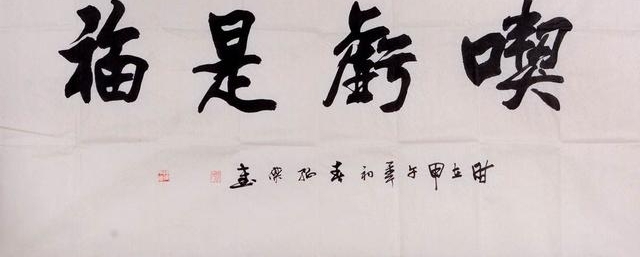 喫虧是福
时在甲午年初春書